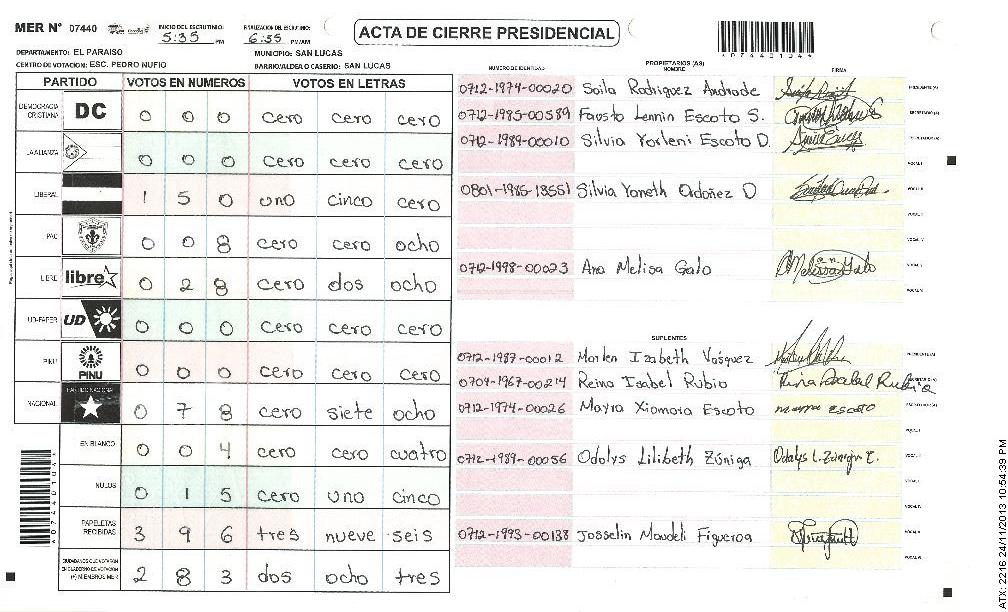 MER N° 07440
INICIO DEL ESCRUTINIO: 5:35 PM
FINALIZACION DEL ESCRUTINIO: 6:55 PM/AM
ACTA DE CIERRE PRESIDENCIAL
0 7 4 4 0 1 0 4 4
DEPARTAMENTO: EL PARAISO
MUNICIPIO: SAN LUCAS
CENTRO DE VOTACION: ESC. PEDRO NUFIO
BARRIO/ALDEA O CASERIO: SAN LUCAS
PARTIDO VOTOS EN NUMEROS VOTOS EN LETRAS
DEMOCRACIA CRISTIANA DC 0 0 0 cero cero cero
LA ALIANZA 0 0 0 cero cero cero
LIBERAL 1 5 0 uno cinco cero
PAC 0 0 8 cero cero ocho
LIBRE libre 0 2 8 cero dos ocho
UD-FAPER UD 0 0 0 cero cero cero
PINU PINU 0 0 0 cero cero cero
NACIONAL PARTIDO NACIONAL 0 7 8 cero siete ocho
EN BLANCO 0 0 4 cero cero cuatro
NULOS 0 1 5 cero uno cinco
PAPELETAS RECIBIDAS 3 9 6 tres nueve seis
CIUDADANOS QUE VOTARON EN CUADERNO DE VOTACION (+) MIEMBROS MER 2 8 3 dos ocho tres
NUMERO DE IDENTIDAD
PROPIETARIOS (AS)
NOMBRE
FIRMA
0712-1974-00020 Soila Rodriguez Andrade PRESIDENTE (A)
0712-1985-00589 Fausto Lennin Escoto S. SECRETARIO (A)
0712-1989-00010 Silvia Yorleni Escoto D. ESCRUTADOR (A)
VOCAL I
0801-1985-18551 Silvia Yoneth Ordoñez D VOCAL II
VOCAL III
VOCAL IV
0712-1998-00023 Ana Melisa Galo VOCAL V
VOCAL VI
SUPLENTES
0712-1987-00012 Marlen Izabeth Vasquez PRESIDENTE (A)
0704-1967-00214 Reina Isabel Rubio Reina Isabel Rubio
0712-1974-00026 Mayra Xiomara Escoto mayra escoto ESCRUTADOR (A)
VOCAL I
0712-1989-00056 Odalys Lilibeth Zúniga Odalys L. Zúniga E. VOCAL II
VOCAL III
VOCAL IV
0712-1993-00138 Josselin Maudeli Figueroa VOCAL V
VOCAL VI
ATX: 2216 24/11/2013 10:54:39 PM